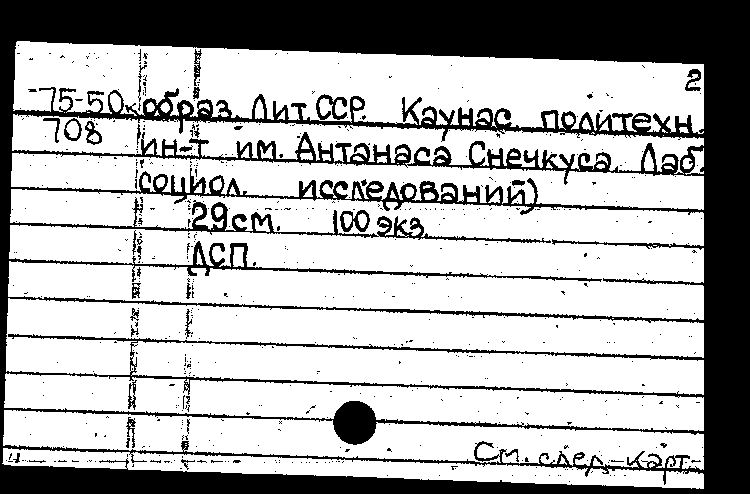 2
75-50к образ. Лит.ССР. Каунас. политехн.
708 ин-т им. Антанаса Снечкуса. Лаб.
социол. исследований)
29см. 100 экз.
ДСП.
См. след. карт.